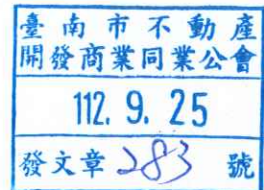 臺南市不動產
開發商業同業公會
112. 9. 25
發文章283號